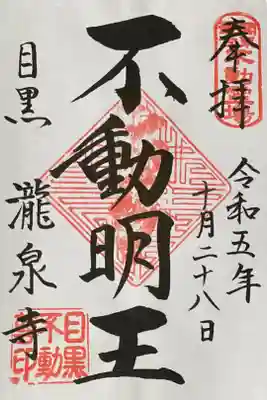 奉拝
令和五年
十月二十八日
不動明王
目黒 瀧泉寺
目黒
不動
印